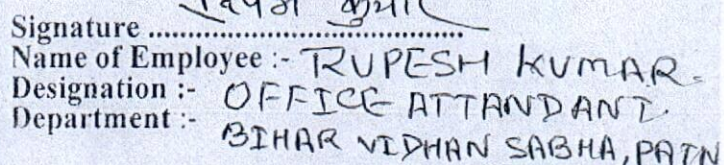 रुपेश कुमार
Signature ........................................
Name of Employee :- RUPESH KUMAR.
Designation :- OFFICE ATTANDANT.
Department :- BIHAR VIDHAN SABHA, PATN